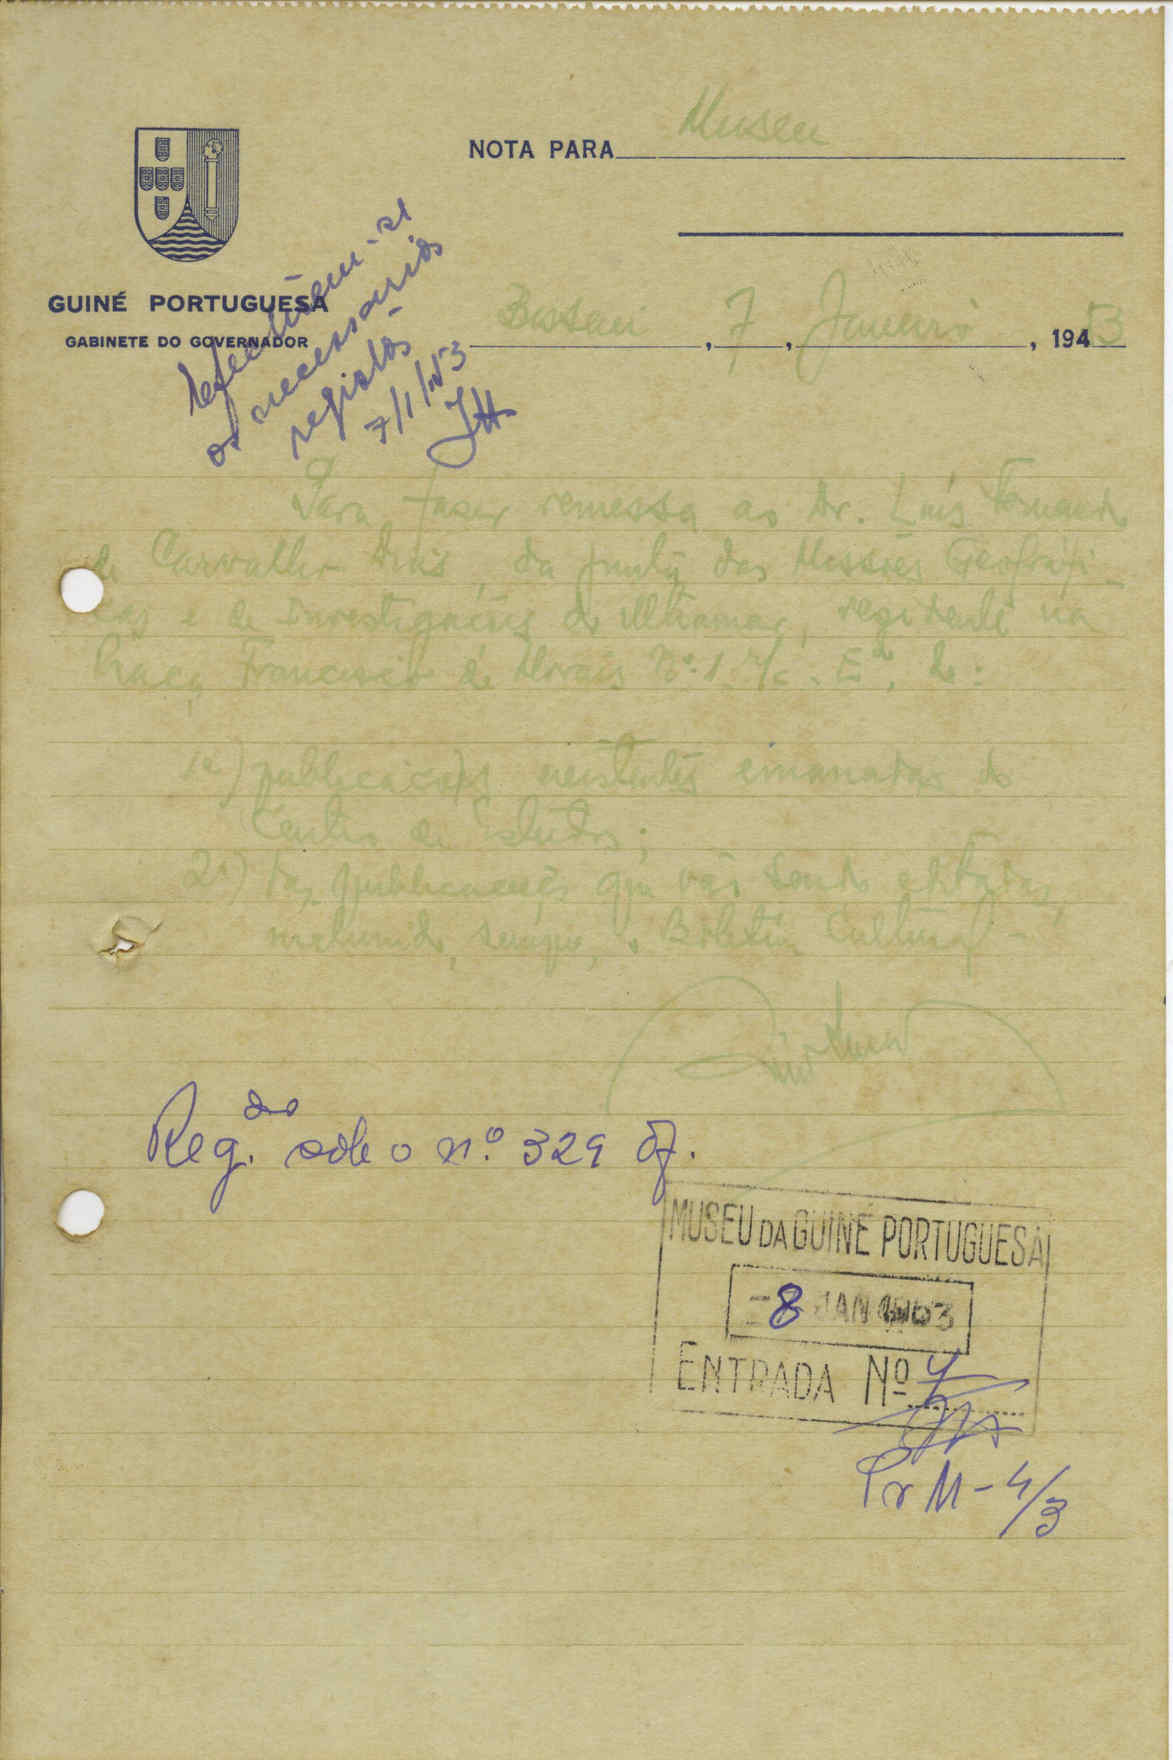 NOTA PARA Museu
GUINÉ PORTUGUESA
GABINETE DO GOVERNADOR
Bissau, 7, Janeiro, 1953
Efectuem-se
os necessários
registos
7/1/53
Para fazer remessa ao Dr. Luís Fernando
de Carvalho Dias, da Junta das Missões Geográfi-
cas e de Investigações do Ultramar, residente na
Praça Francisco de Morais Nº 1. r/c. Eº, de:
1º) publicações existentes emanadas do
Centro de Estudos;
2º) das publicações que vão sendo editadas,
incluindo, sempre, o Boletim Cultural -
Reg.do sob o nº 329 Of.
MUSEU DA GUINÉ PORTUGUESA
-8 JAN 1953
ENTRADA Nº 4
Pr M-4/3